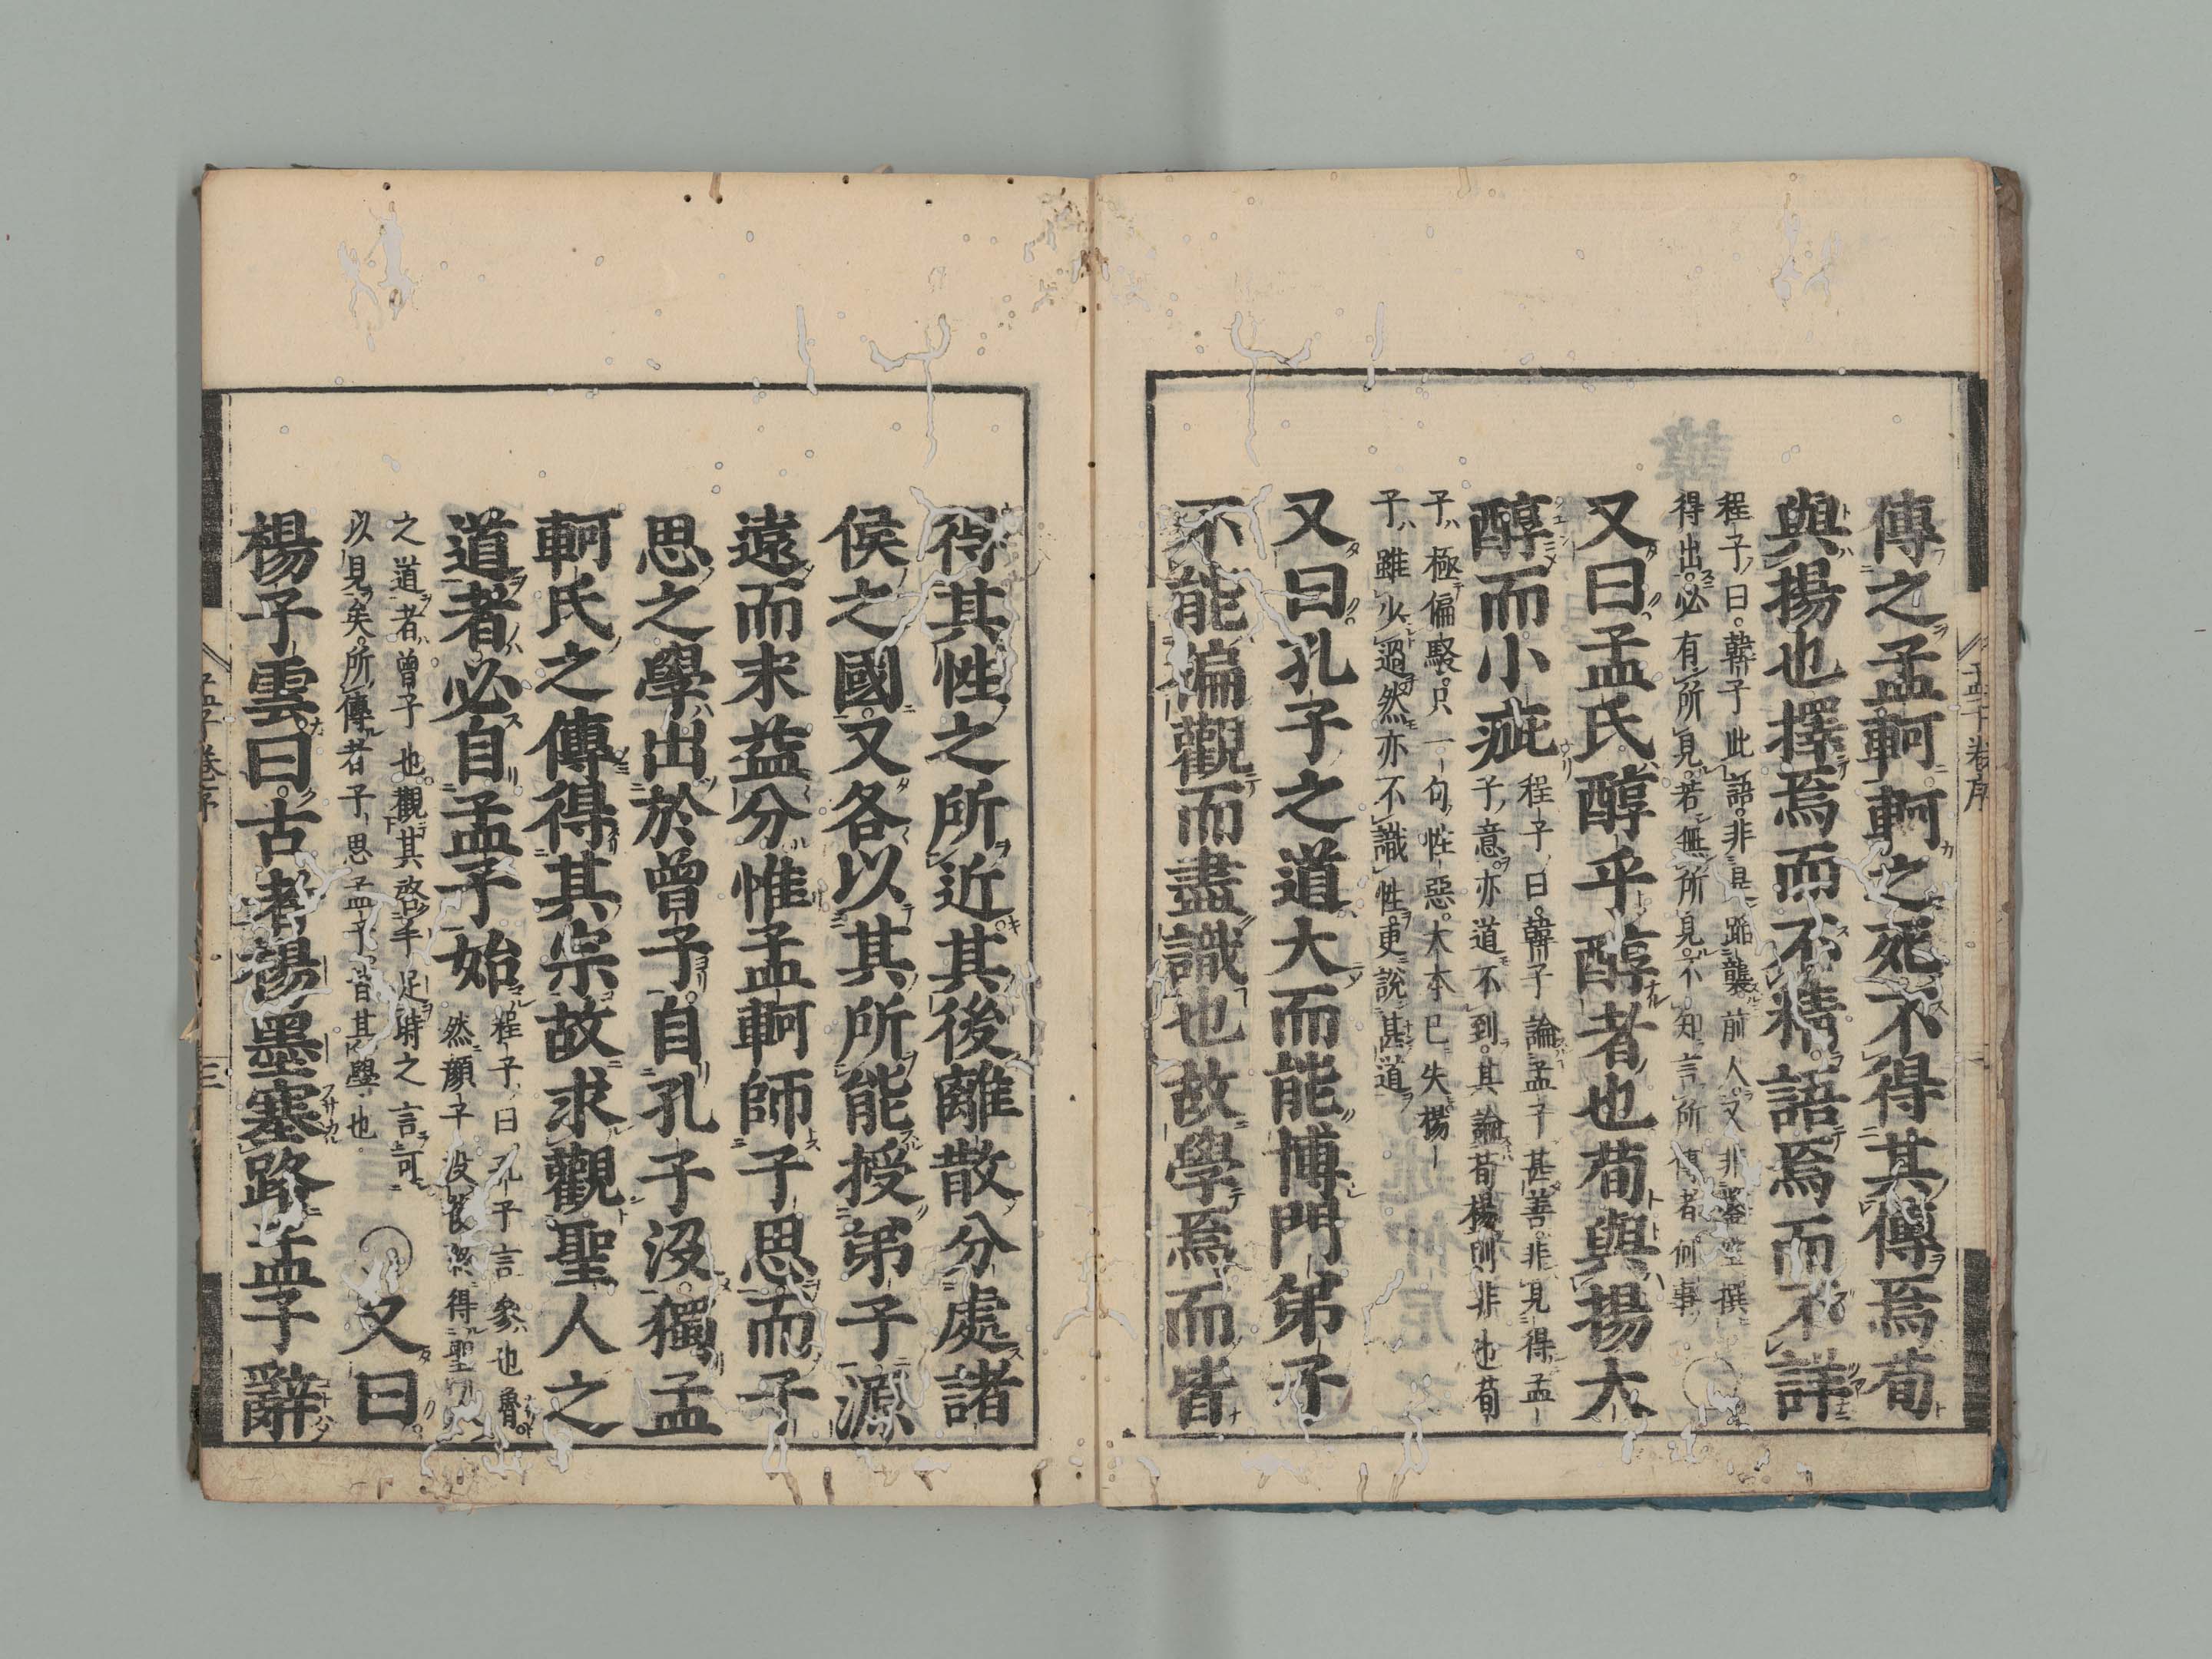 傳之孟軻軻之死不得其傳焉荀
與揚也擇焉而不精語焉而不詳
程子曰韓子此語非是蹈襲前人又非鑿空撰
得出必有所見若無所見不知言所傳者何事
又曰孟氏醇乎醇者也荀與揚大
醇而小疵
程子曰韓子論孟子甚善非見得孟
子意亦道不到其論荀揚則非也荀
子極偏駁只一句性惡大本已失揚
子雖少過然亦不識性更說甚道
又曰孔子之道大而能博門弟子
不能徧觀而盡識也故學焉而皆
得其性之所近其後離散分處諸
侯之國又各以其所能授弟子源
遠而末益分惟孟軻師子思而子
思之學出於曾子自孔子沒獨孟
軻氏之傳得其宗故求觀聖人之
道者必自孟子始
程子曰孔子言參也魯
然顏子沒後終得聖人
之道者曾子也觀其啓手足時之言可
以見矣所傳者子思孟子皆其學也
又曰
楊子雲曰古者揚墨塞路孟子辭
孟子卷序
三